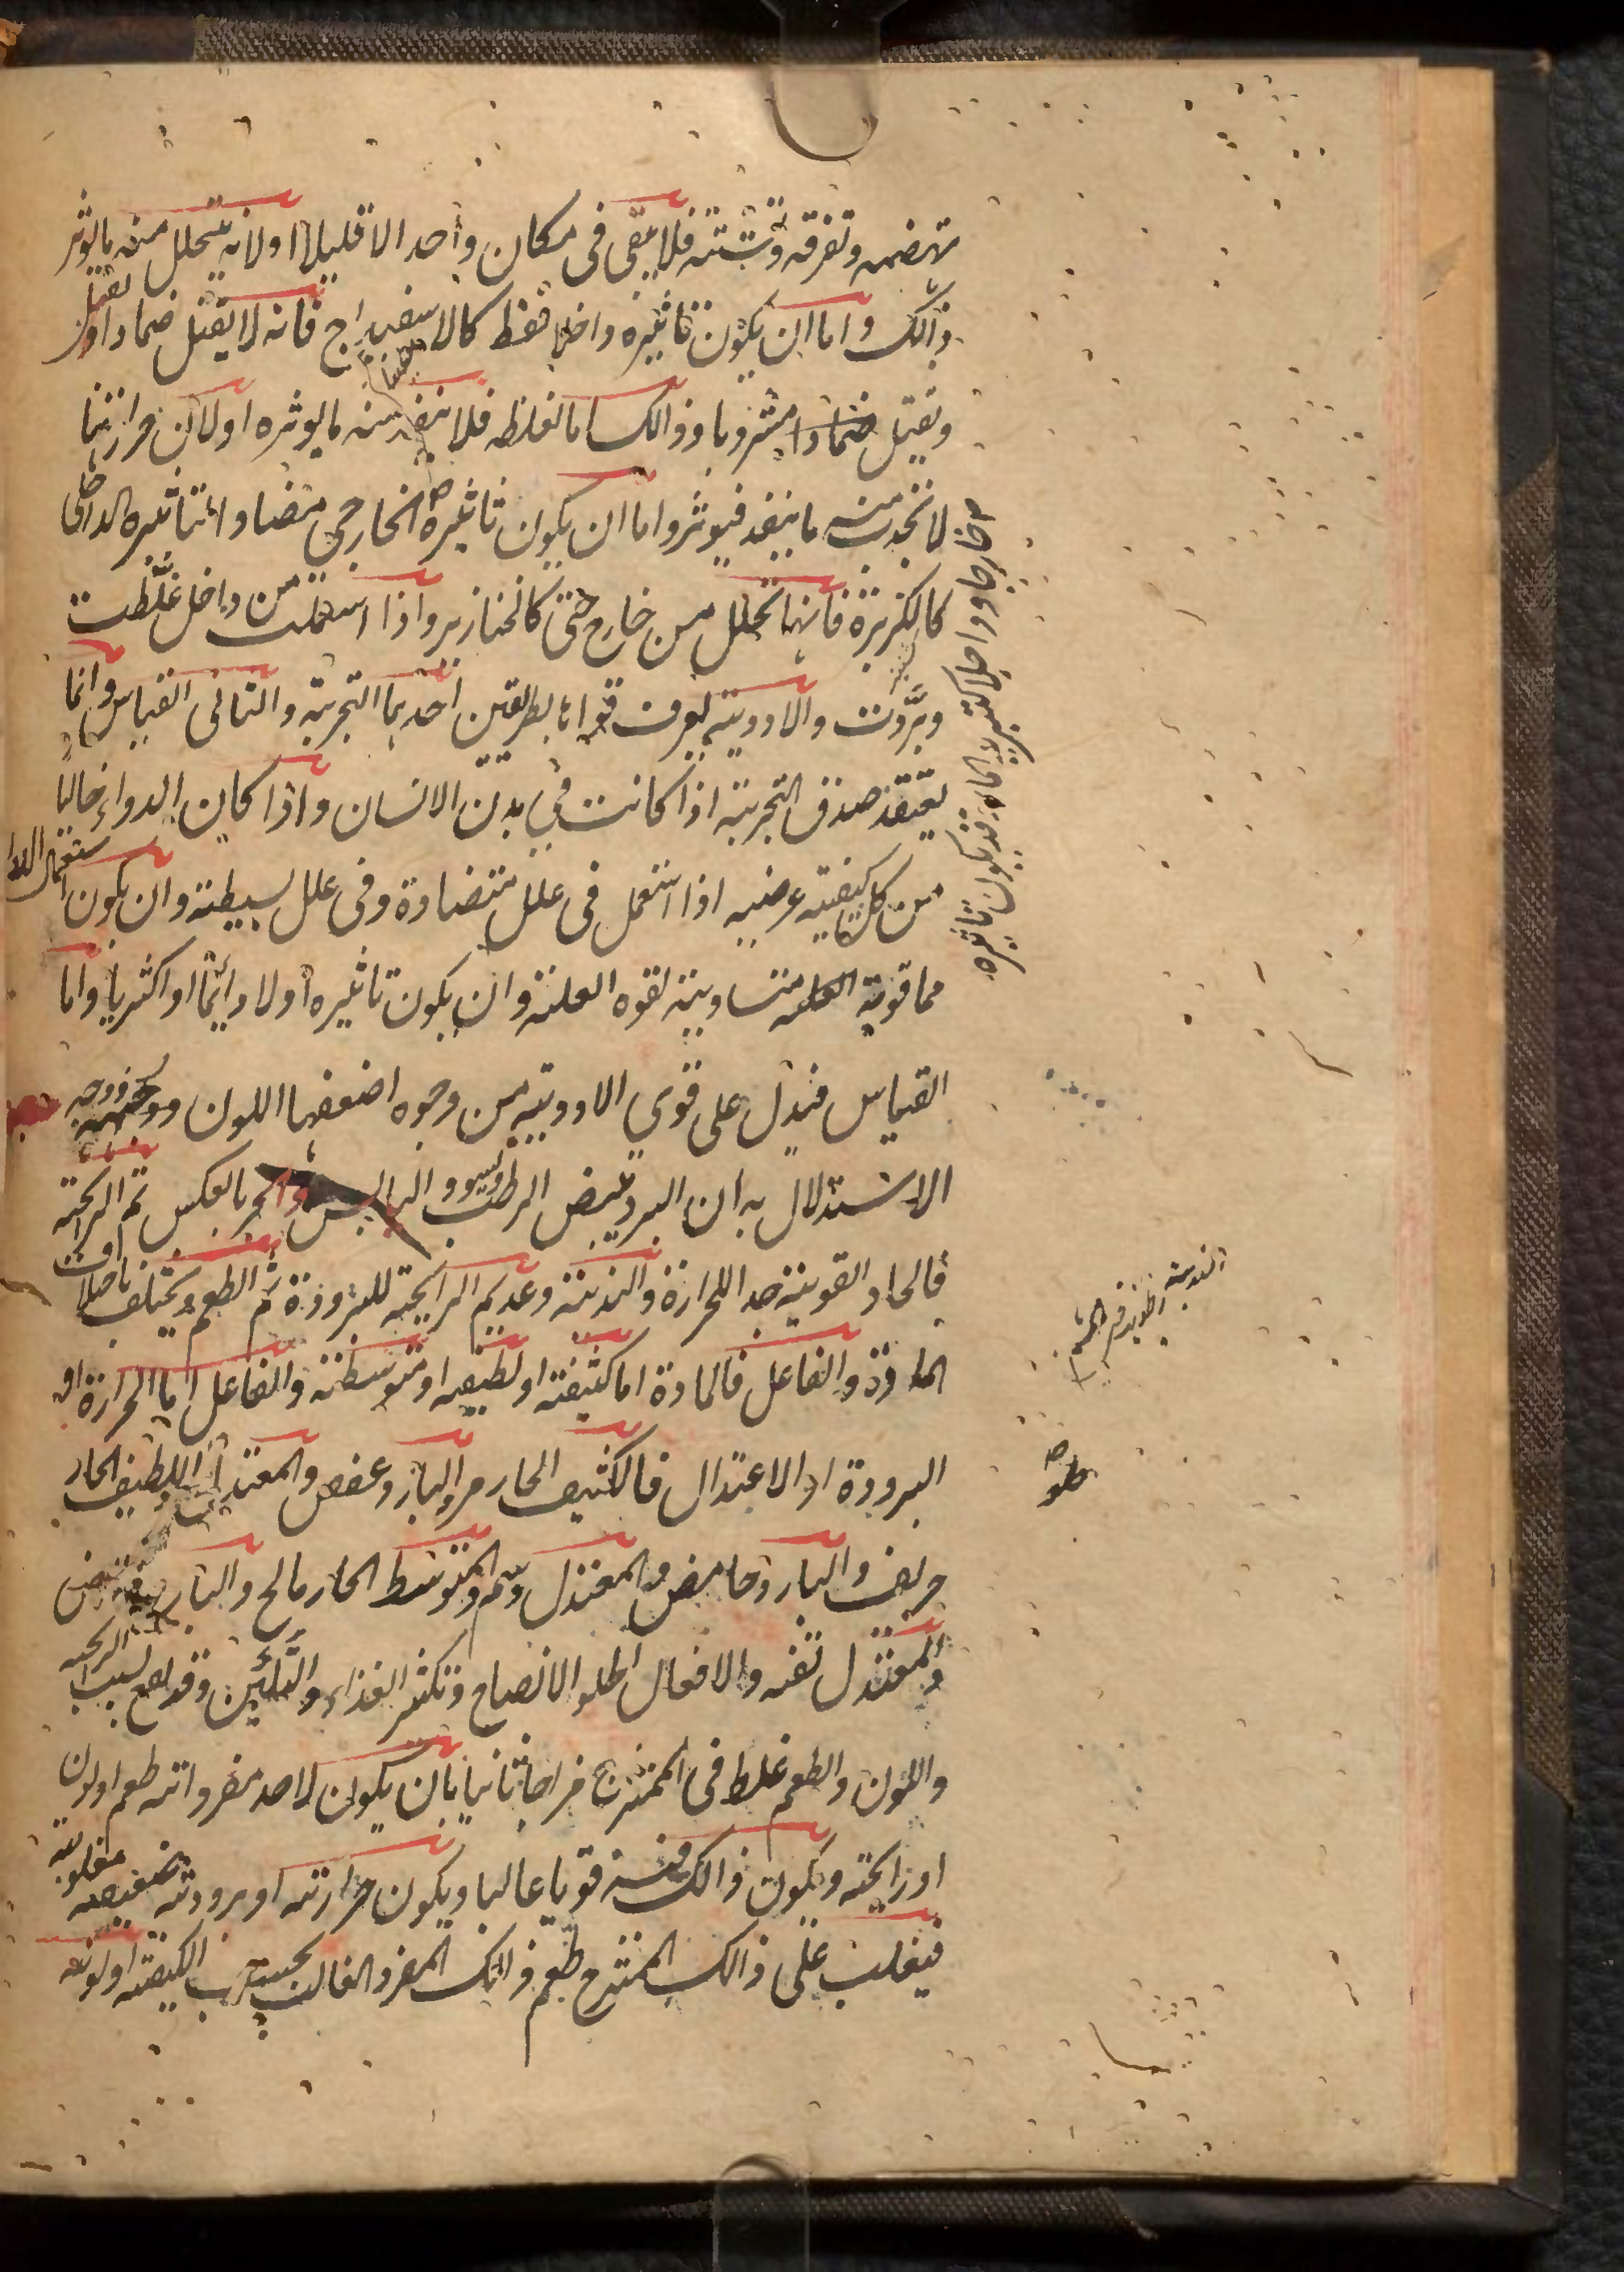 تهضمه وتفرقه وتشتته فلا يبقى فى مكان واحد الا قليلا او لانه يتحلل منه ما يوثر
ذالك واما ان يكون تاثيره داخلا فقط كالاسفيداج فانه لا يقتل ضمادا و
ويقتل مشروبا وذالك اما لغلظه فلا ينفذ منه ما يوثره او لان حرارتنا
لا تجذب منه ما ينفذ فيوثر واما ان يكون تاثيره الخارجى مضادا لتاثيره الداخلى
كالكزبرة فانها تحلل من خارج حتى كالخنازير واذا استعملت من داخل غلّظت
وبرّدت والادوية يعرف قواها بطريقين احدهما التجربة والثانى القياس وانما
يعتقد صدق التجربة اذا كانت فى بدن الانسان واذا كان الدواء خاليا
من كل كيفية عرضيه اذا استعمل فى علل متضادة وفى علل بسيطة وان يكون استعمال الدوا
مما قوته متساوية لقوه العلة وان يكون تاثيره اولا دائما او اكثريا واما
القياس فيدل على قوى الادوية من وجوه اضعفها اللون ووجه
الاستدلال به ان البرد يبيض الرطب ويسود اليابس والحر بالعكس ثم الرائحة
فالحاد القوية جدا للحرارة والندية وعديم الرائحة للبرودة ثم الطعم ويختلف باختلاف
المادة والفاعل فالمادة اما كثيفة او لطيفه او متوسطة والفاعل اما الحرارة او
البرودة او الاعتدال فالكثيف الحار مر والبارد عفص والمعتدل واللطيف الحار
حريف والبارد حامض والمعتدل دسم والمتوسط الحار مالح والبارد قابض
والمعتدل تفه والافعال الحلو الانضاج وتكثير الغذاء والتليين وقد يقع بسبب الرائحه
واللون والطعم غلط فى الممتزج مزاجا ثانيا بان يكون لاحد مفرداته طعم او لون
او رائحة ويكون ذالك فيه قويا غالبا ويكون حرارته او برودته ضعيفه مغلوبة
فيغلب على ذالك الممتزج طعم ذالك المفرد الغالب بحسب الكيفية او لونه
خارجا وداخلا قد يكون تاثيره
حلو